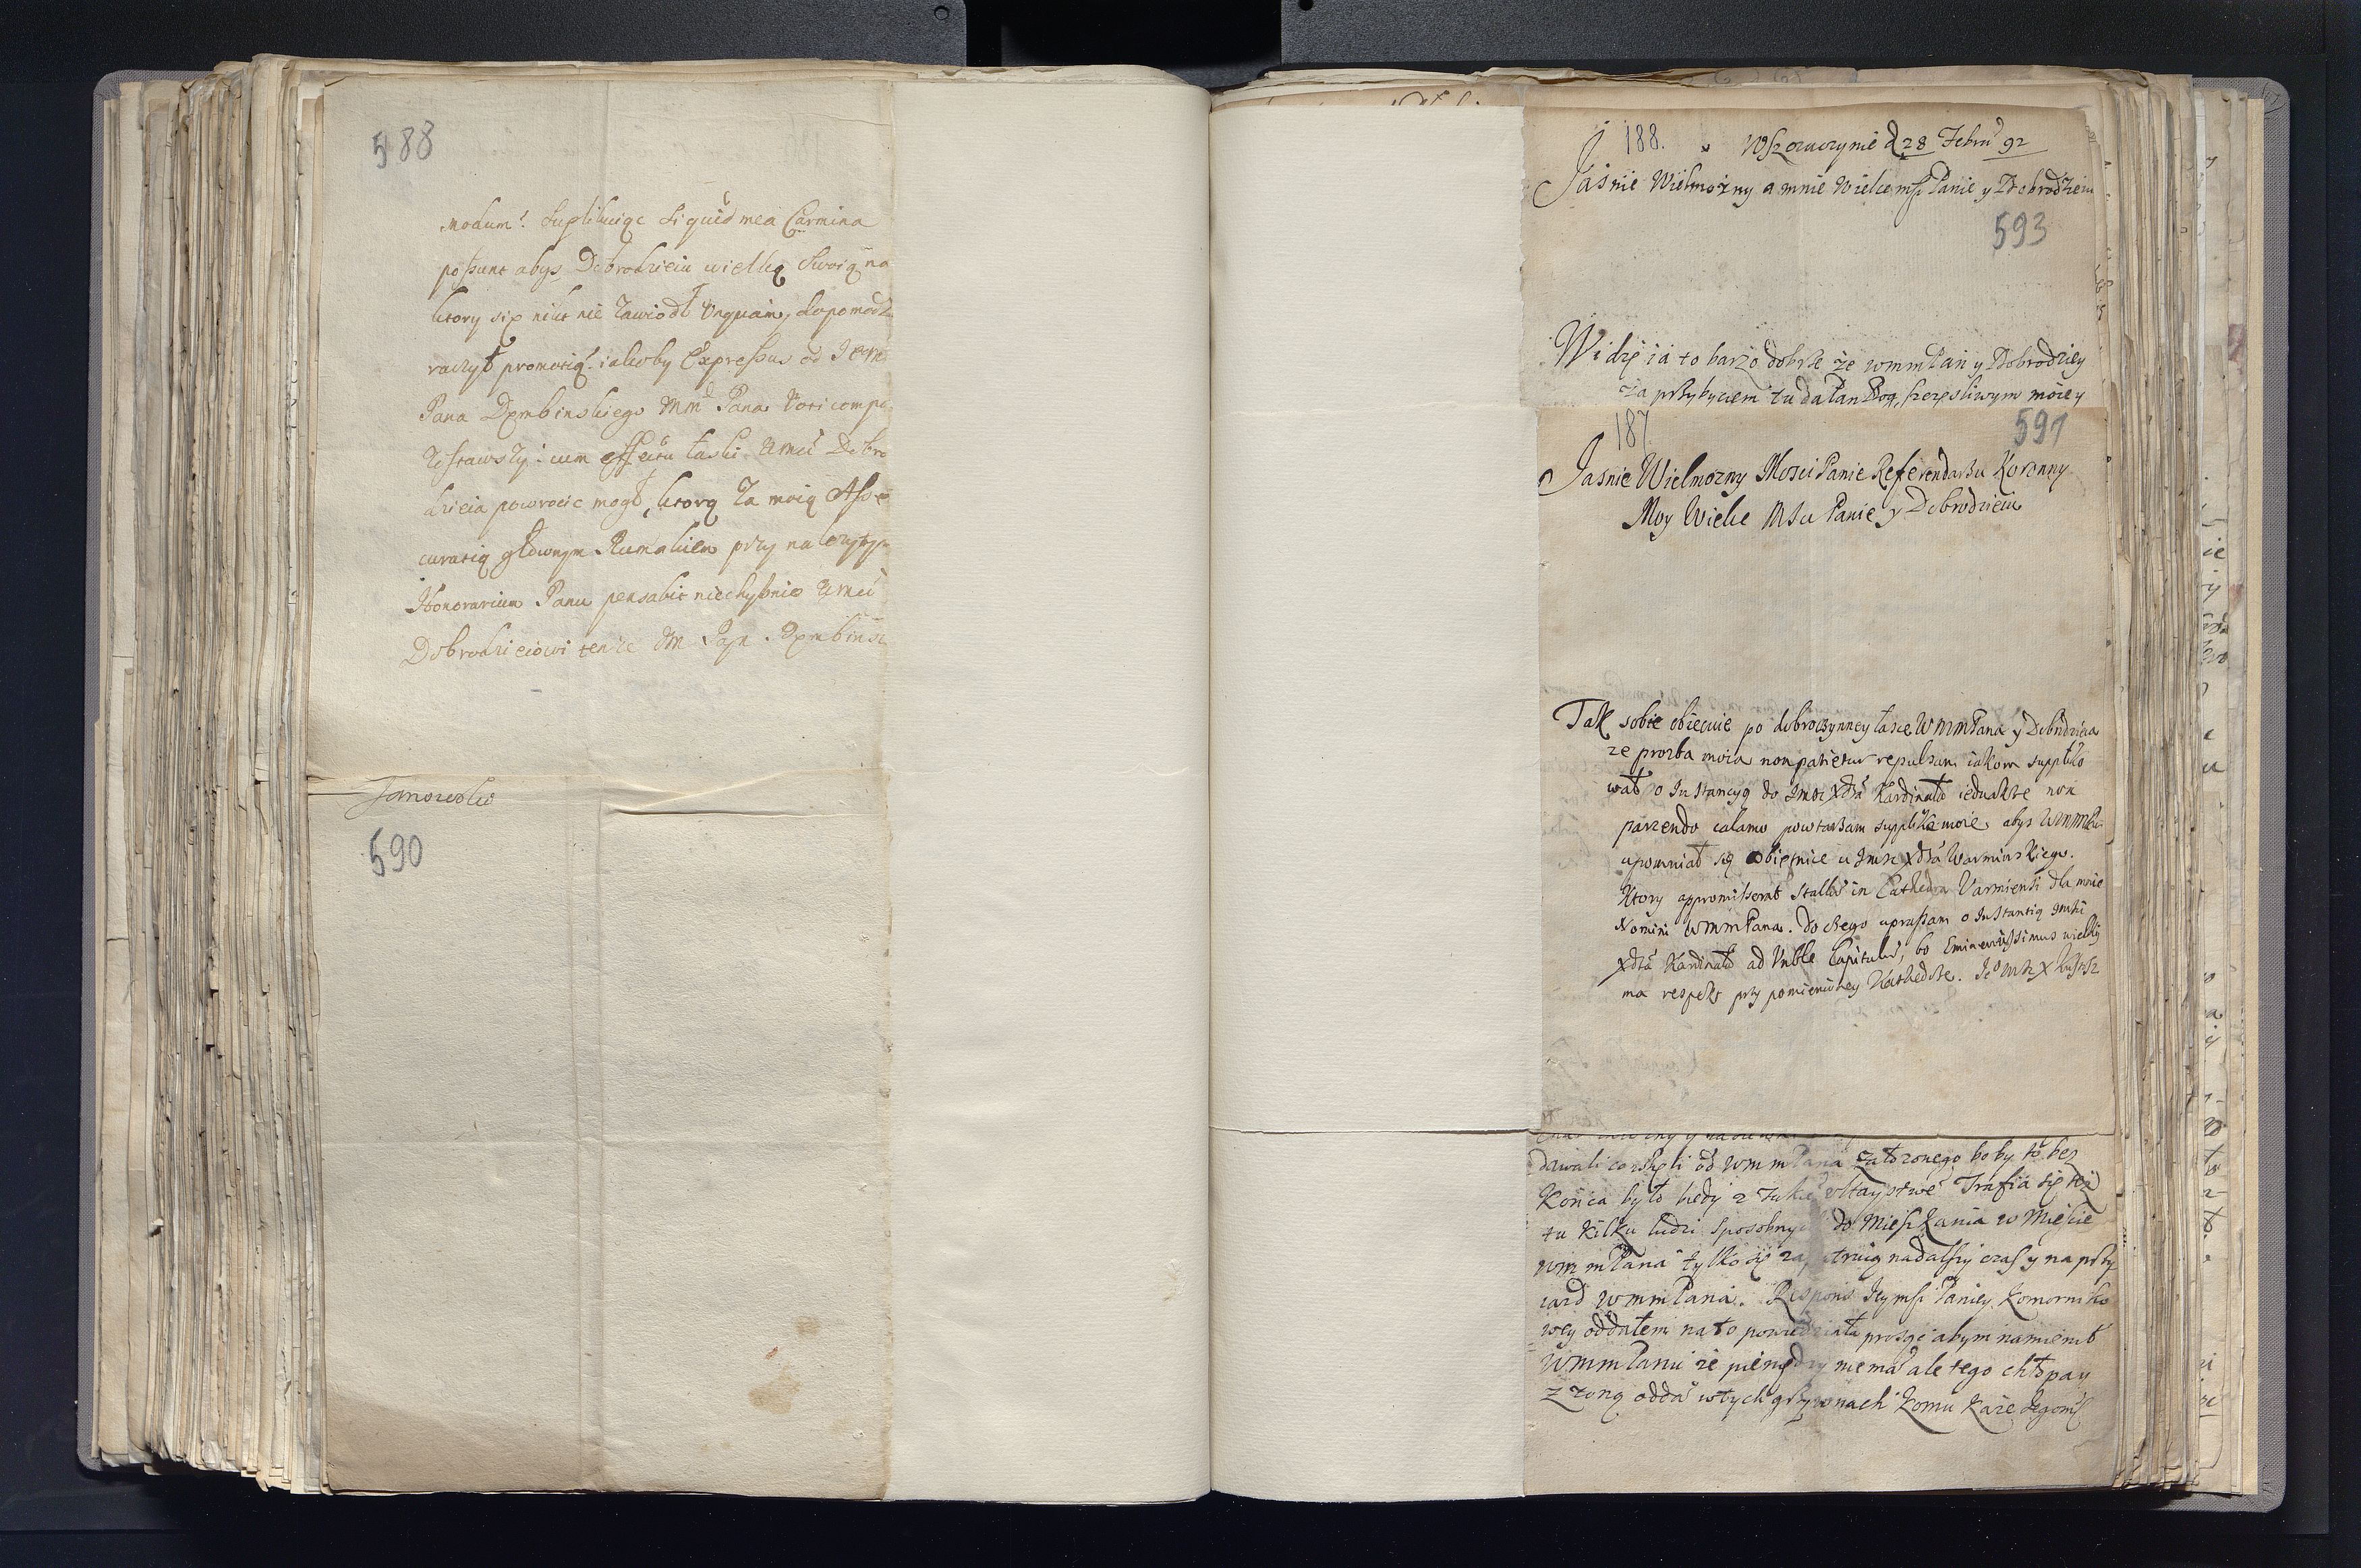 588
modum. Suplikuiąc Siquid mea Carmina
possunt abys Dobrodzieiu wielką Swoią na
ktory się nikt nie zawiodł unquam, dopomodz
raczył promotią. iakoby Expressus od Jem
Pana Dembinskiego Mmd Pana Voti compo
zostawszy: cum effectu łaski Wmci Dobro
dzieia powrocic mogł, ktorą za moią Asse
curatią głownym Rumakiem przy należytym
Honorarium Panu pensabit niechybnie Wmci
Dobrodzieiowi tenże Jm Pan Dembinsk
Janowska
590
188. W Szczuczynie d 28 Febru 92
Jasnie Wielmożny a mnie Wielce msci Panie y Dobrodzieiu
593
Widzę ia to barzo dobrze że wmmPan y Dobrodziey
za przybyciem tu da Pan Bog, szczęsliwym możey
187
591
Jasnie Wielmozny Mosci Panie Referendarzu Koronny
Moy Wielce Msci Panie y Dobrodzieiu
Tak sobie obiecuie po dobroczynney łasce WmmPana y Dobrodzieia
ze prozba moia non patietur repulsam iakom suppliko
wał o Instancyą do Jmsci Xdza Kardinała iednakże non
parcendo calamo powtarzam supplikę moię, abys Wmm
upomniał się obietnice u Jmsci Xdza Warminskiego.
Ktory appromiserat Stallum in Cathedra Varmiensi dla mnie
Nomini WmmPana. do czego upraszam o Instantią Jmsci
Xdza Kardinała ad Vnble Capitulum, bo Eminentissimus wielki
ma respekt przy pomienioney Kathedrze. Jego Msc X Kustosz
dawali co wzięli od WmmPana załozonego bo by to bez
Konca było kiedy z takie Trafia się też
tu kilku ludzi sposobnych do Mieszkania w Miescie
WmmPana tylko się zapatruią na dalszy czas y na przy
iazd WmmPana. Respons Jeymsci Paniey Komorniko
wey oddałem na to powiedziała prosząc abym namienił
WmmPanu że pieniędzy niema ale tego chłopa y
z zoną odda w tych grzywnach komu każe Jegomsc